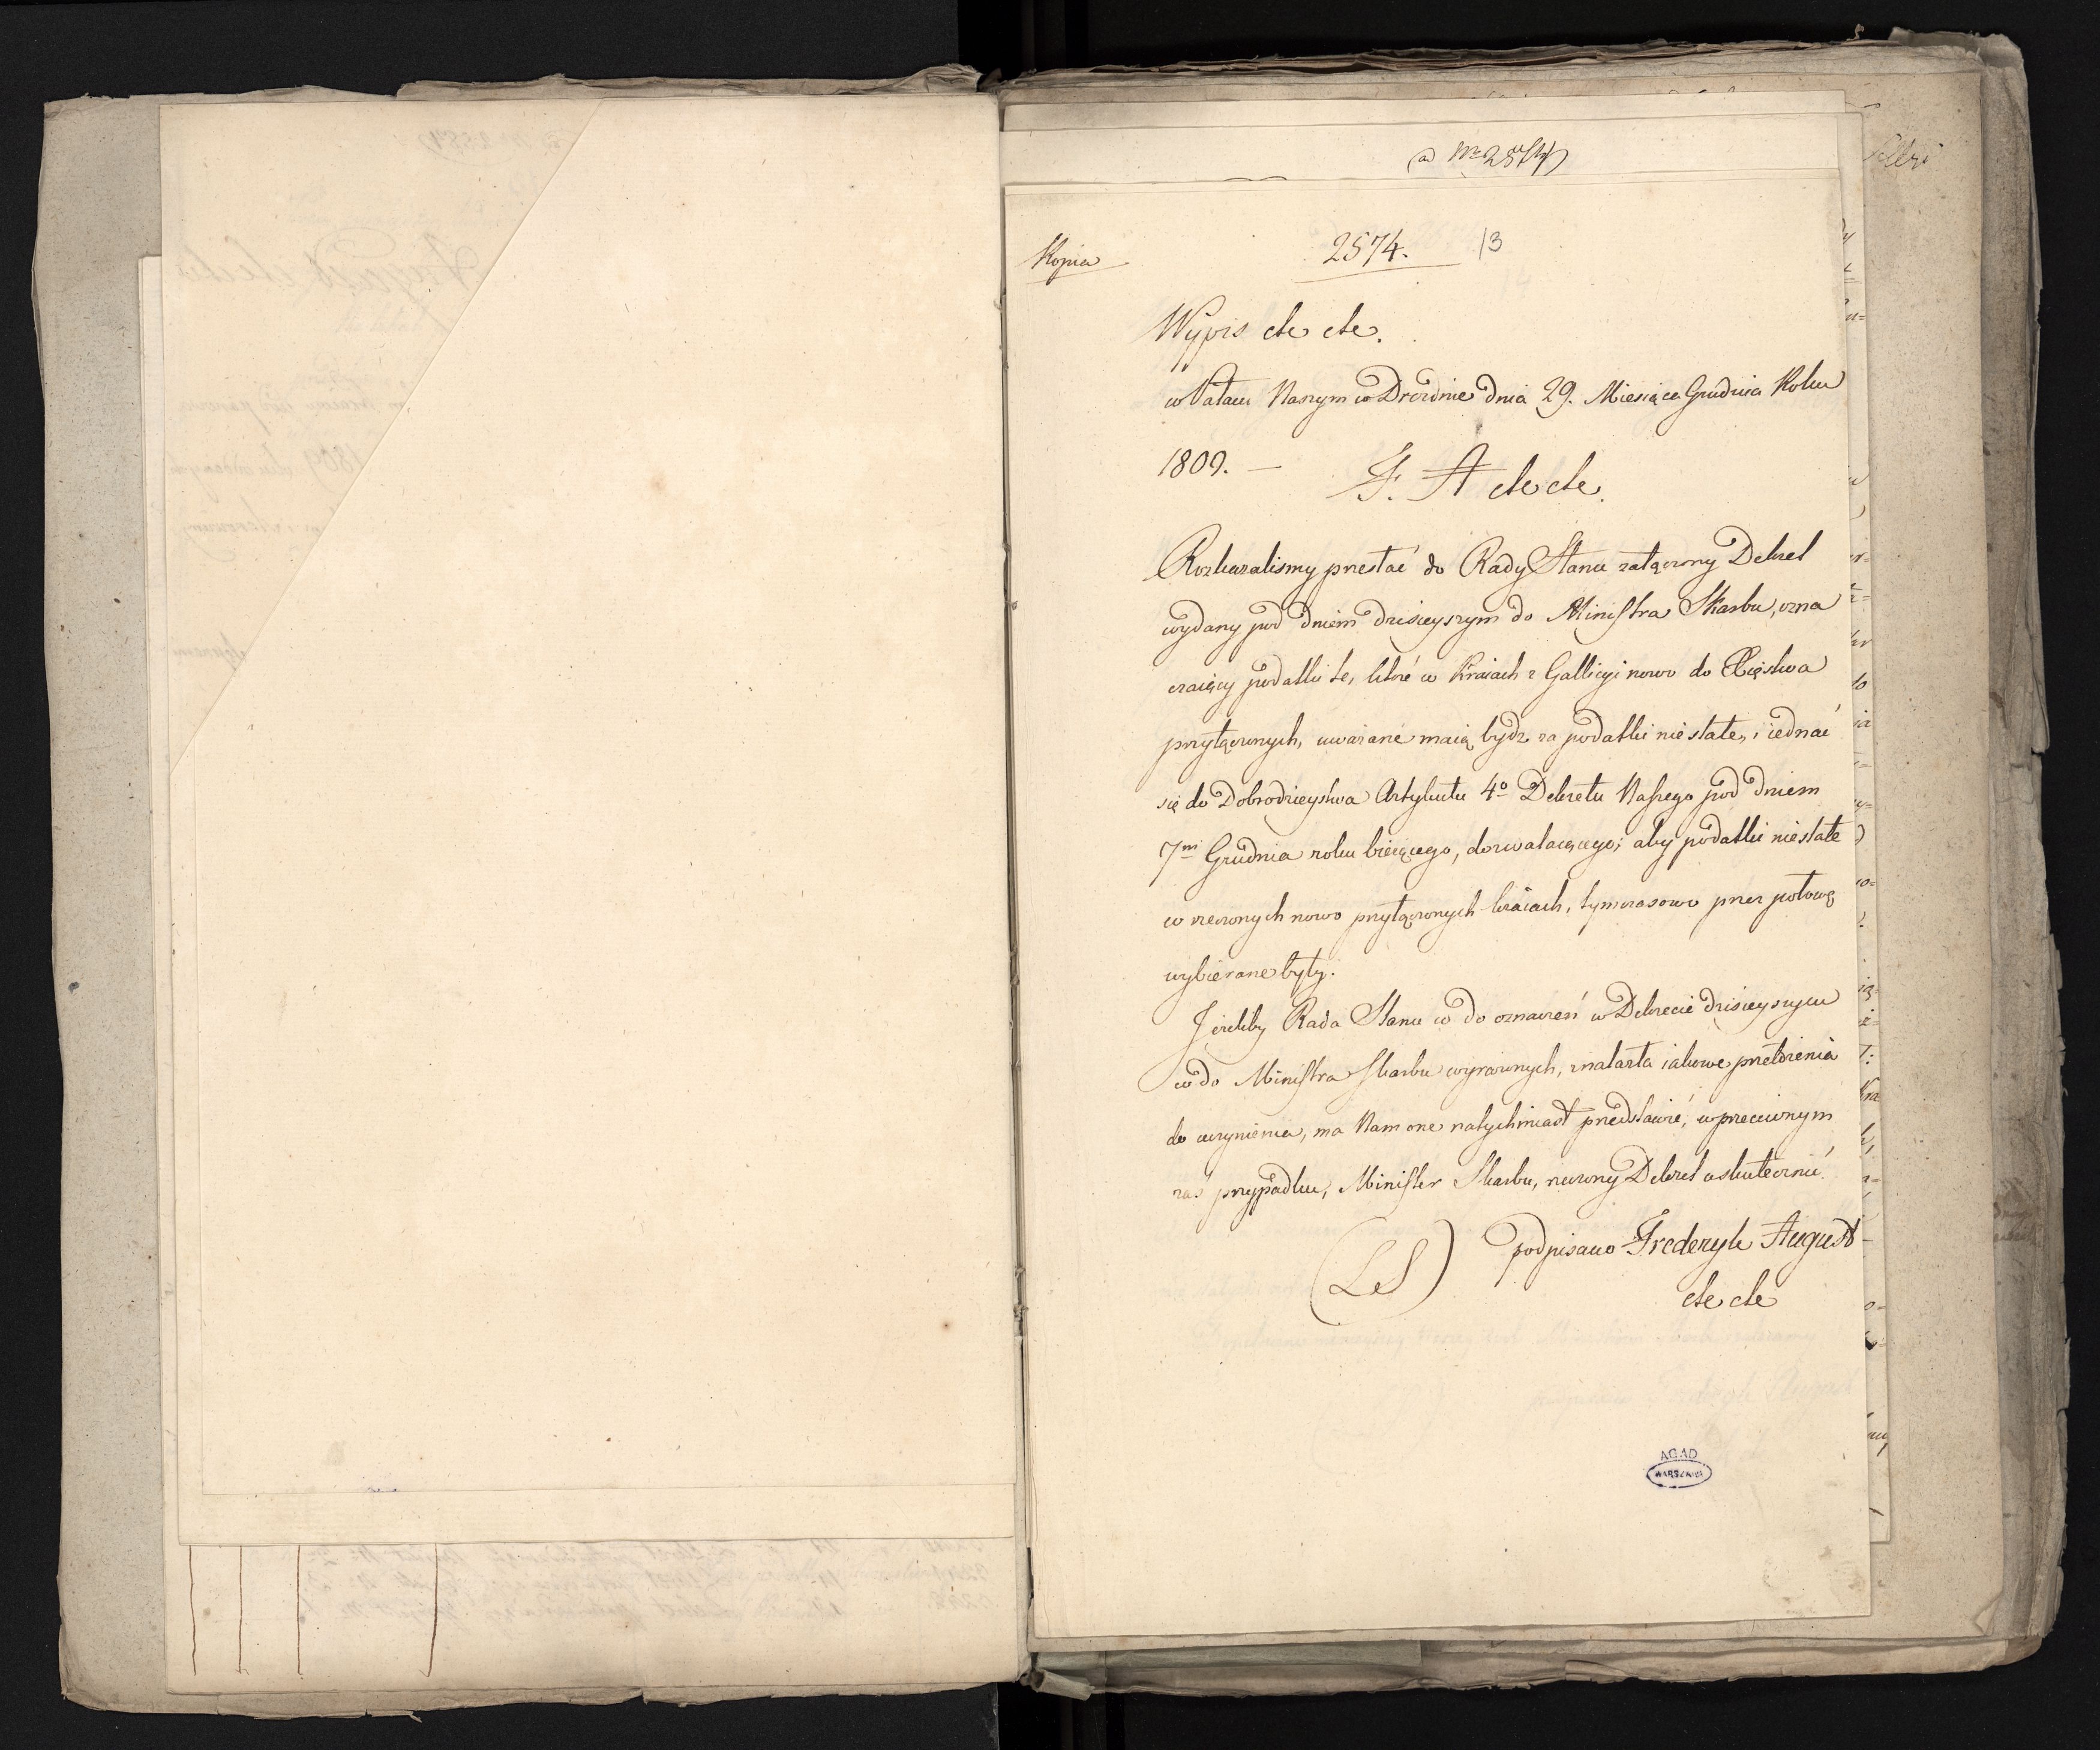 ad Nr 2574
Kopia
2574.
13
Wypis etc etc.
w Pałacu Naszym w Dreznie dnia 29. Miesiąca Grudnia Roku
1809. —
F. A etc etc.
Rozkazalismy przesłać do Rady Stanu załączony Dekret
wydany pod dniem dzisieyszym do Ministra Skarbu, ozna
czaiący podatki te, które w Kraiach z Gallicyi nowo do Xięstwa
przyłączonych, uważane maią bydz za podatki niestałe, i iednać
się do Dobrodzieystwa Artykułu 4º Dekretu Naszego pod dniem
7m Grudnia roku bieżącego, dozwalaiącego; aby podatki niestałe
w rzeczonych nowo przyłączonych kraiach, tymczasowo przez połowę
wybierane były.
Jeżeliby Rada Stanu co do oznaczeń w Dekrecie dzisieyszym
co do Ministra Skarbu wyrażonych, znalazła iakowe przełożenia
do uczynienia, ma Nam one natychmiast przedstawić, w przeciwnym
zaś przypadku, Minister Skarbu, rzeczony Dekret uskutecznić.
(LS) podpisano Frederyk August
etc etc
AGAD
WARSZAWA